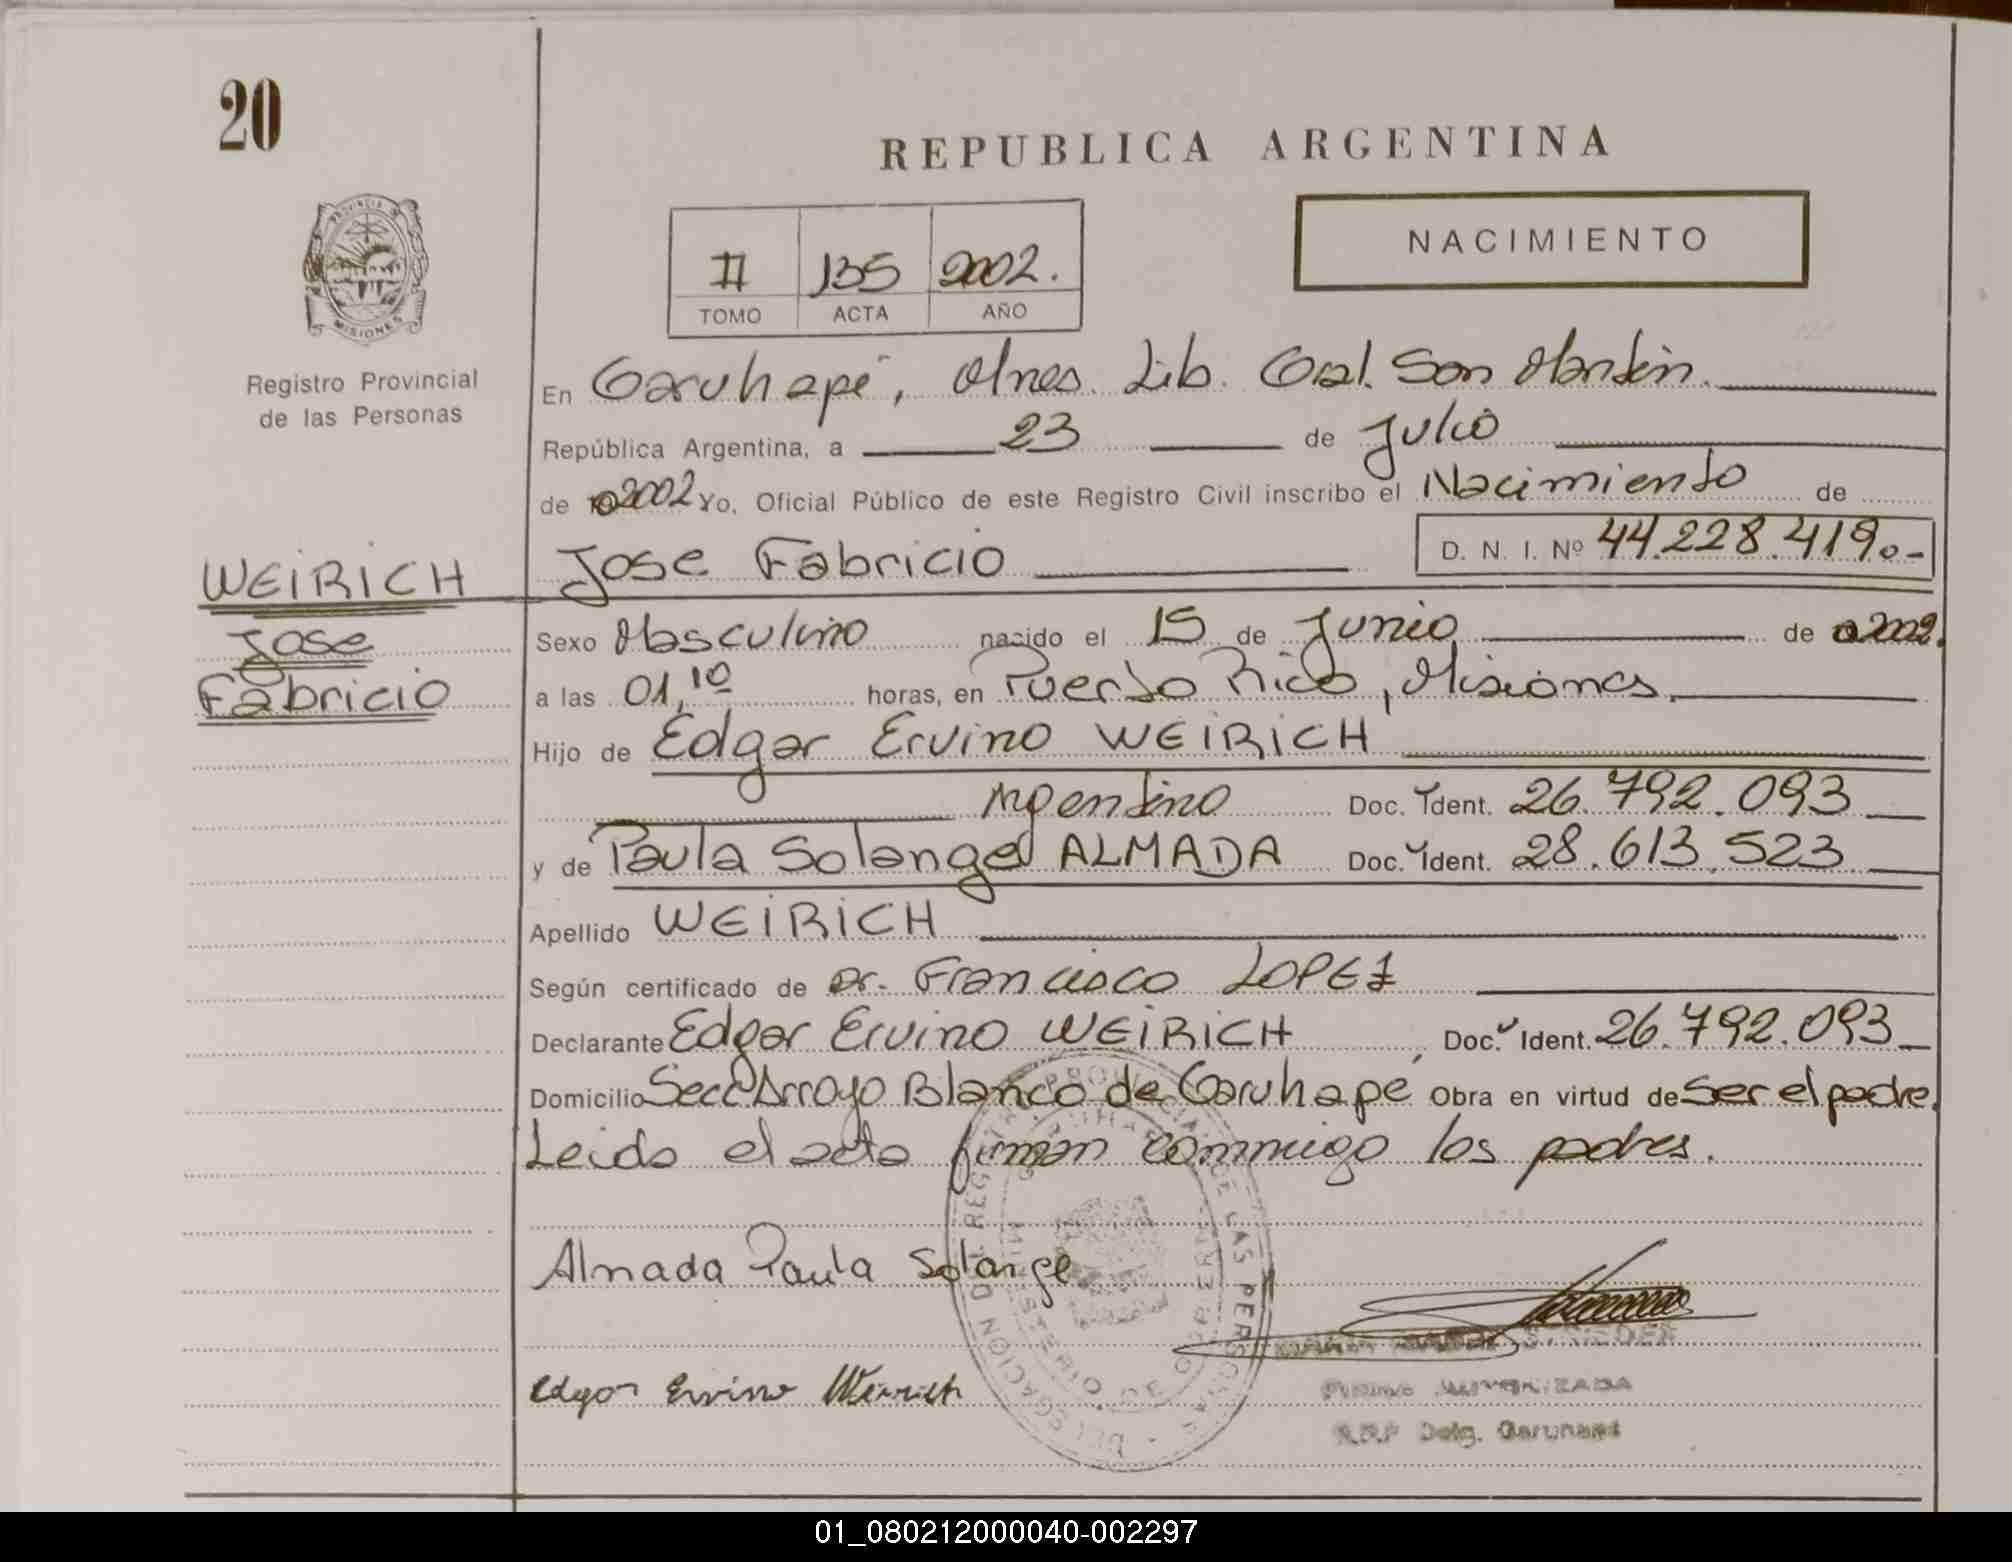 20
REPUBLICA ARGENTINA
NACIMIENTO
II 135 2002.
TOMO ACTA AÑO
PROVINCIA DE
MISIONES
Registro Provincial
de las Personas
En Garuhapé, Mnes. Lib. Gral. San Martín.
República Argentina, a 23 de Julio
de 2002 Yo, Oficial Público de este Registro Civil inscribo el Nacimiento de
Jose Fabricio D. N. I. Nº 44.228.419.-
WEIRICH
Jose
Fabricio
Sexo Masculino nacido el 15 de Junio de 2002.
a las 01,10 horas, en Puerto Rico, Misiones.
Hijo de Edgar Ervino WEIRICH
Argentino Doc. Ident. 26.792.093
y de Paula Solange ALMADA Doc. Ident. 28.613.523
Apellido WEIRICH
Según certificado de Dr. Francisco LOPEZ
Declarante Edgar Ervino WEIRICH Doc. Ident. 26.792.093
Domicilio Secc Arroyo Blanco de Garuhapé Obra en virtud de Ser el padre.
Leida el acta firman conmigo los padres.
Almada Paula Solange
Edgar Ervino Weirich
DELEGACION DEL REGISTRO PROVINCIAL DE LAS PERSONAS
MINISTERIO DE GOBIERNO
FIRMA AUTORIZADA
R.R.P Deleg. Garuhape
01_080212000040-002297